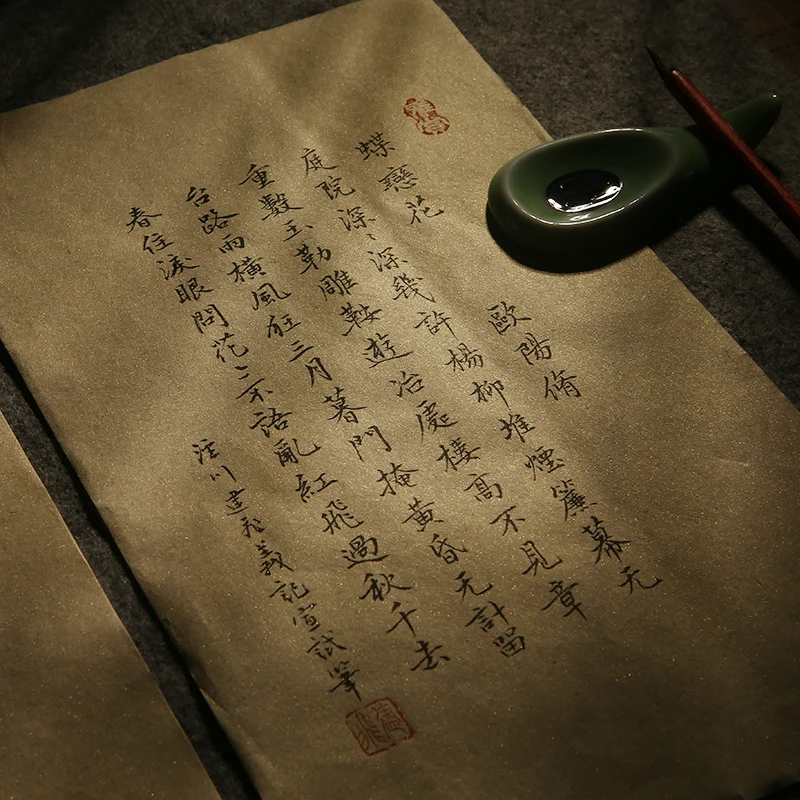 蝶戀花 歐陽脩
庭院深〻深幾許楊柳堆煙簾幕无
重數玉勒雕鞍遊冶處樓高不見章
台路雨橫風狂三月暮門掩黃昏无計留
春住淚眼問花〻不語亂紅飛過秋千去
川建飛義記宣試筆